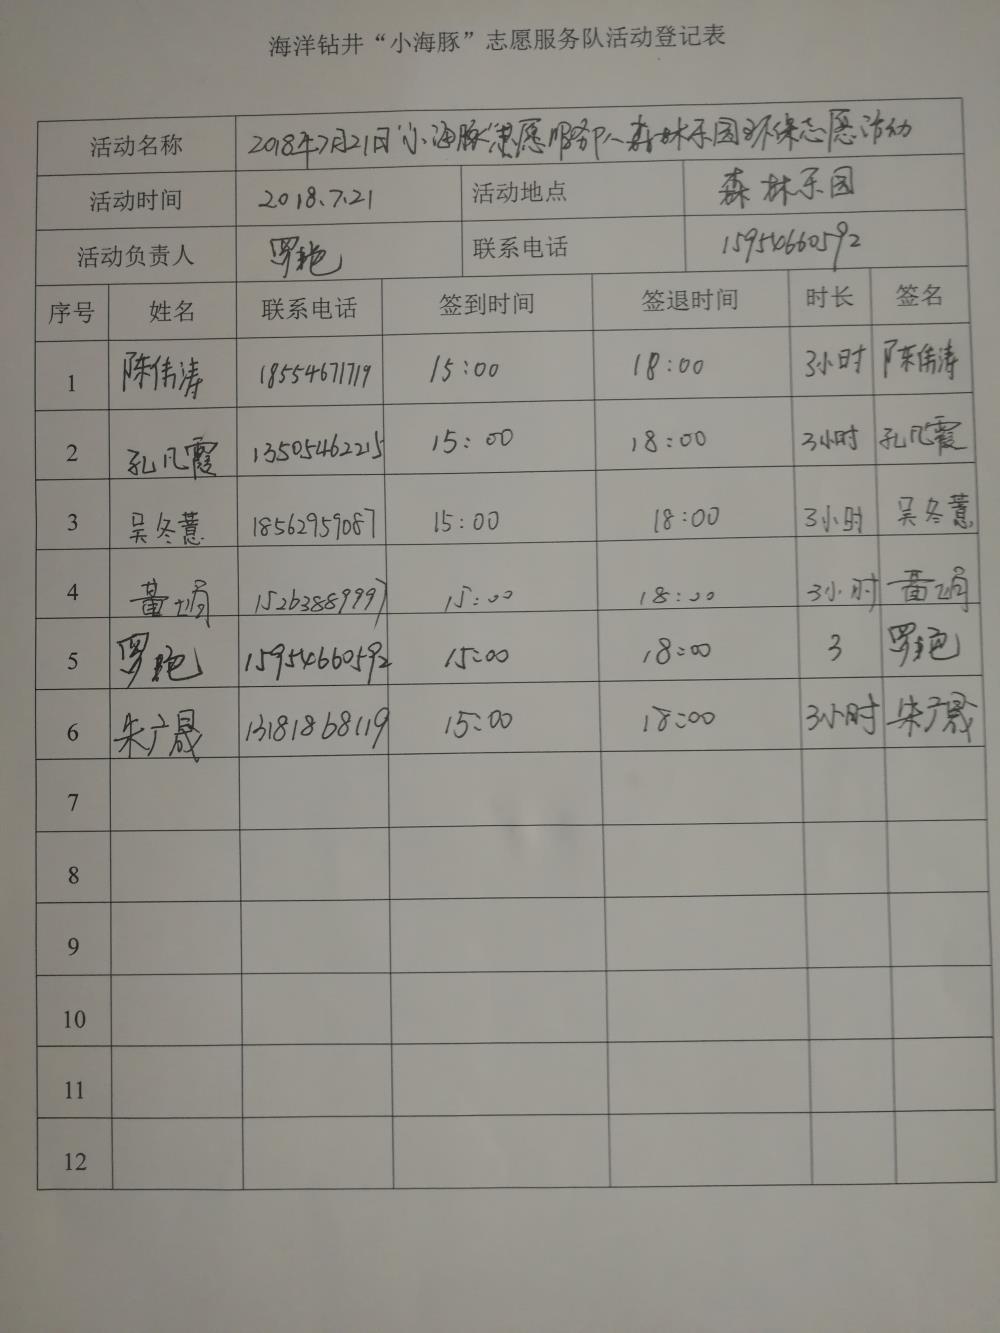 海洋钻井“小海豚”志愿服务队活动登记表
活动名称 2018年7月21日“小海豚”志愿服务队森林乐园环保志愿活动
活动时间 2018.7.21 活动地点 森林乐园
活动负责人 罗艳 联系电话 15954660592
序号 姓名 联系电话 签到时间 签退时间 时长 签名
1 陈伟涛 18554671719 15:00 18:00 3小时 陈伟涛
2 孔凡霞 13505462215 15:00 18:00 3小时 孔凡霞
3 吴冬薏 18562959087 15:00 18:00 3小时 吴冬薏
4 黄 15263889997 15:00 18:00 3小时 黄
5 罗艳 15954660592 15:00 18:00 3 罗艳
6 朱广晟 13181868119 15:00 18:00 3小时 朱广晟
7
8
9
10
11
12